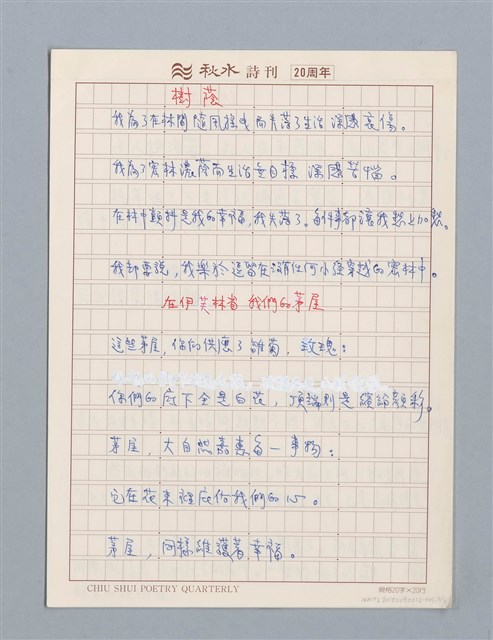 秋水 詩刊 20周年
樹蔭
我為了在林間隨風搖曳而失落了生活 深感哀傷。
我為了密林濃蔭而生活無目標 深感苦惱。
在林中顛料是我的幸福,我失落了。每件事都讓我愁上加愁。
我却要說,我樂於逗留在沒有任何小徑穿越的密林中。
在伊芙林省 我們的茅屋
這些茅屋,你們供應了雛菊,玫瑰:
你們的底下全是白花,頂端則是繽紛顏彩。
茅屋,大自然嘉惠每一事物:
它在花束裡庇佑我們的心。
茅屋,同樣維護著幸福。
CHIU SHUI POETRY QUARTERLY
規格20字×20行